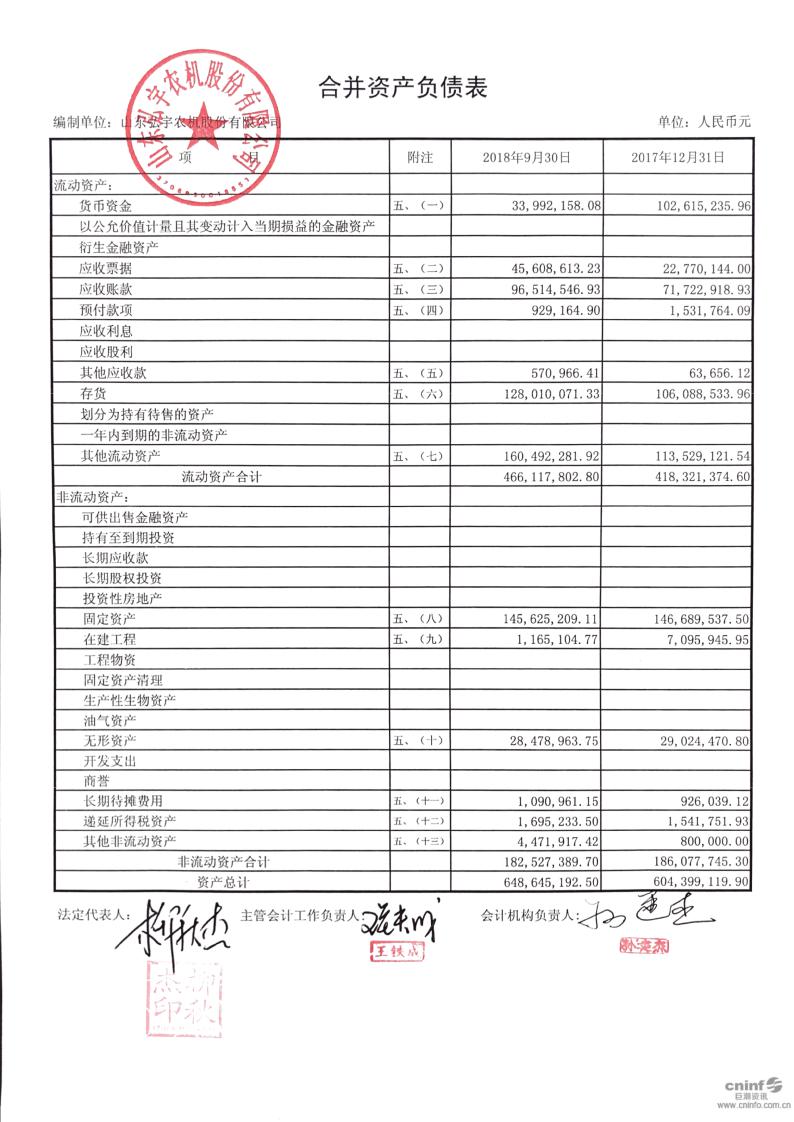 合并资产负债表
编制单位：山东弘宇农机股份有限公司 单位：人民币元
山东弘宇农机股份有限公司
项 目 附注 2018年9月30日 2017年12月31日
流动资产：
货币资金 五、（一） 33,992,158.08 102,615,235.96
以公允价值计量且其变动计入当期损益的金融资产
衍生金融资产
应收票据 五、（二） 45,608,613.23 22,770,144.00
应收账款 五、（三） 96,514,546.93 71,722,918.93
预付款项 五、（四） 929,164.90 1,531,764.09
应收利息
应收股利
其他应收款 五、（五） 570,966.41 63,656.12
存货 五、（六） 128,010,071.33 106,088,533.96
划分为持有待售的资产
一年内到期的非流动资产
其他流动资产 五、（七） 160,492,281.92 113,529,121.54
流动资产合计 466,117,802.80 418,321,374.60
非流动资产：
可供出售金融资产
持有至到期投资
长期应收款
长期股权投资
投资性房地产
固定资产 五、（八） 145,625,209.11 146,689,537.50
在建工程 五、（九） 1,165,104.77 7,095,945.95
工程物资
固定资产清理
生产性生物资产
油气资产
无形资产 五、（十） 28,478,963.75 29,024,470.80
开发支出
商誉
长期待摊费用 五、（十一） 1,090,961.15 926,039.12
递延所得税资产 五、（十二） 1,695,233.50 1,541,751.93
其他非流动资产 五、（十三） 4,471,917.42 800,000.00
非流动资产合计 182,527,389.70 186,077,745.30
资产总计 648,645,192.50 604,399,119.90
法定代表人： 柳秋杰 主管会计工作负责人： 王铁成 会计机构负责人：
王铁成
柳秋杰印
cninf
巨潮资讯
www.cninfo.com.cn